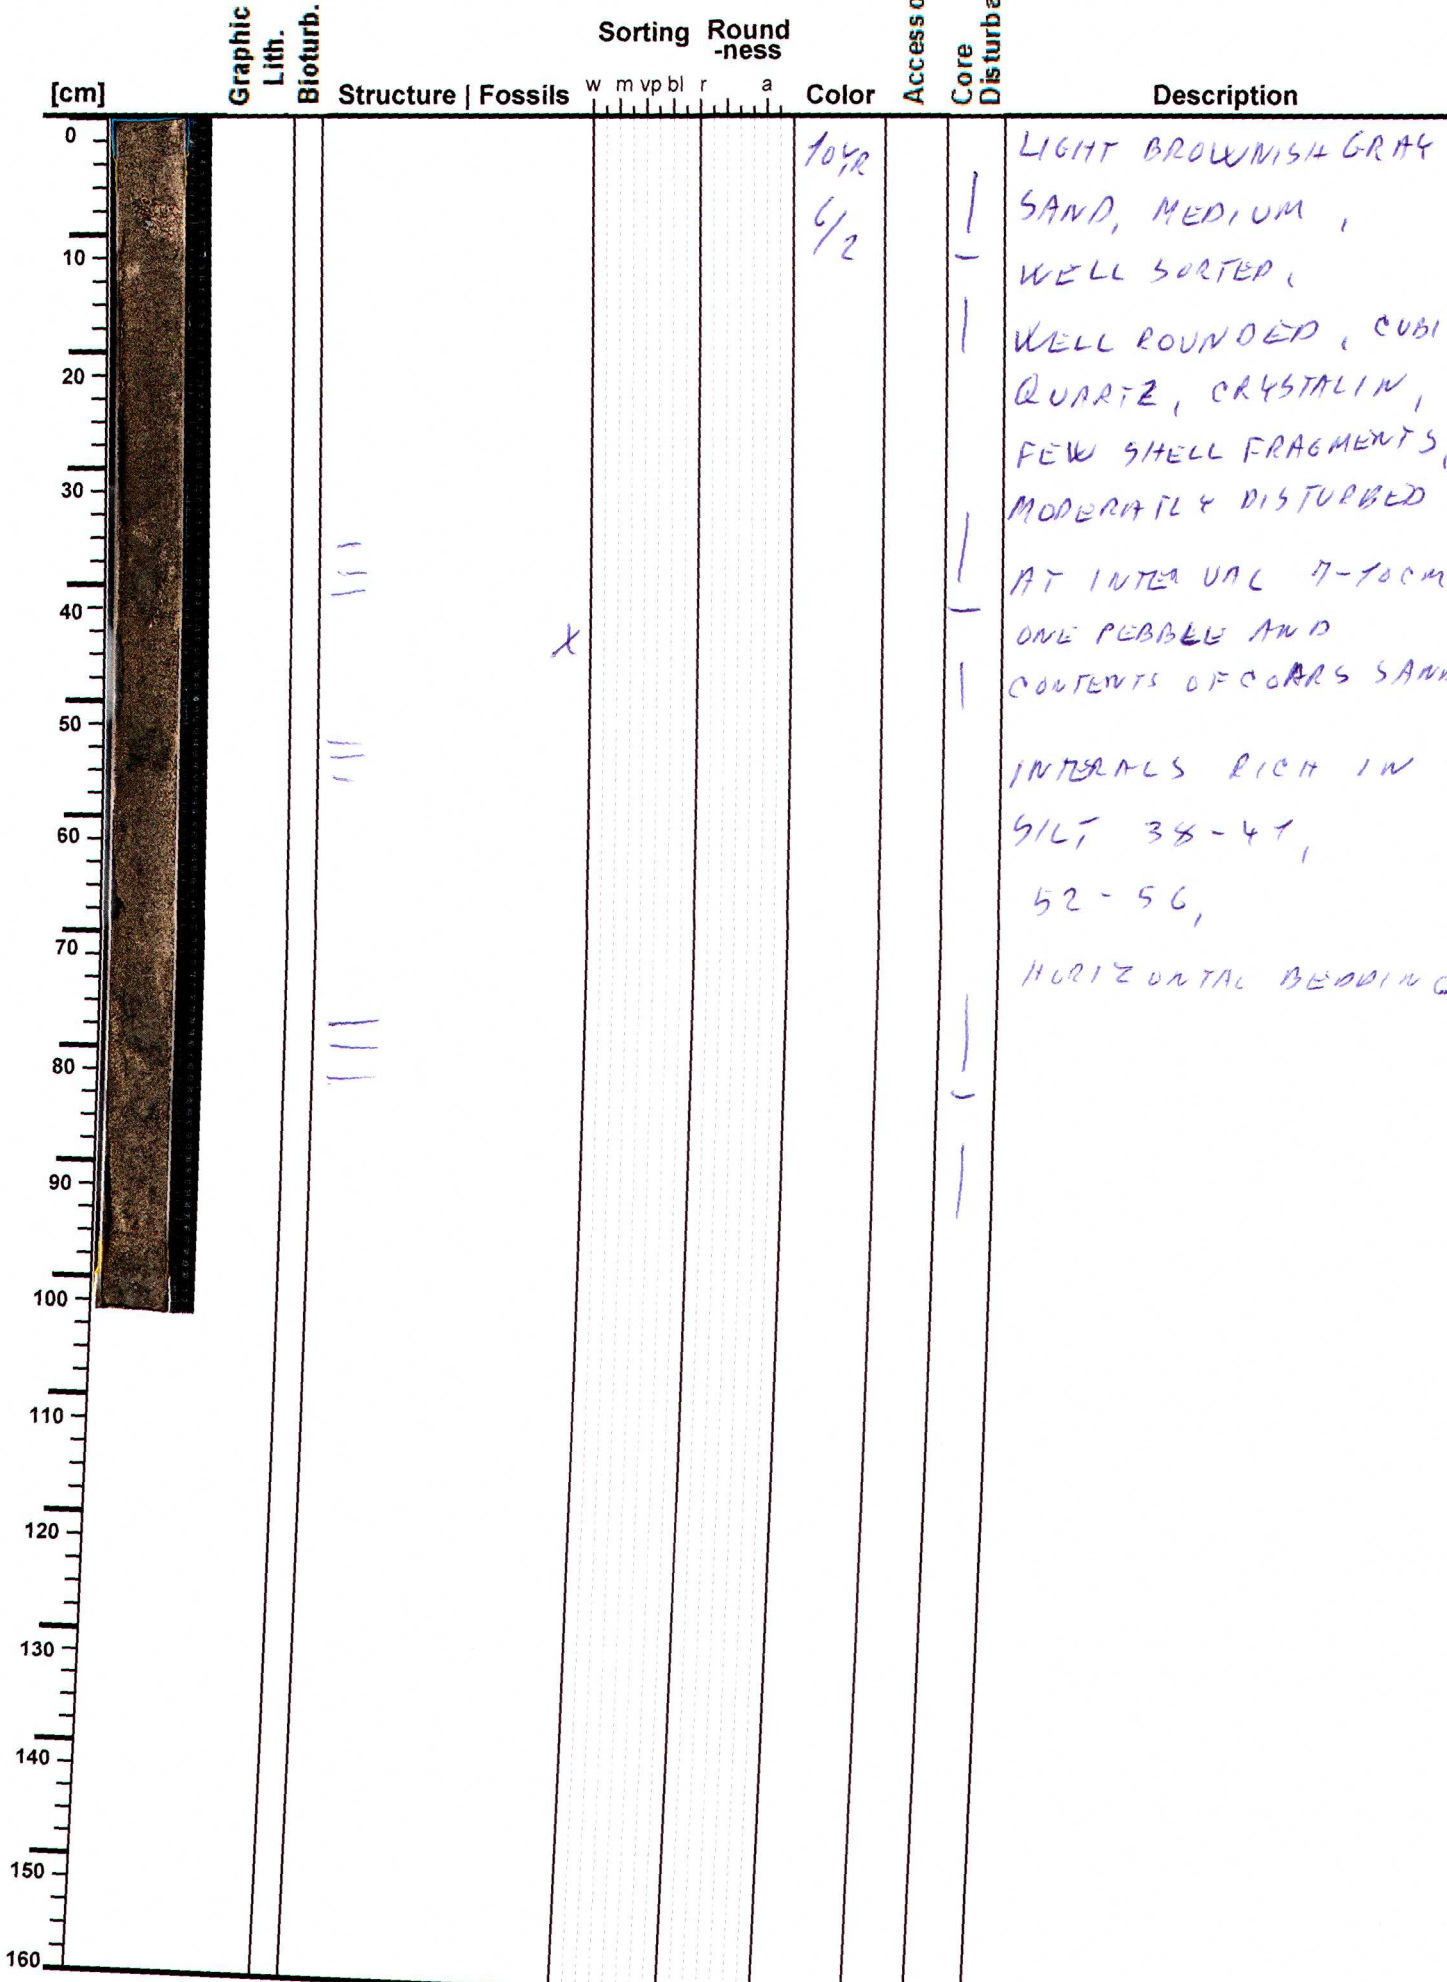 Graphic
Lith.
Bioturb.
Sorting Round
-ness
Core
Disturba
[cm]
Structure | Fossils
w m vp bl r a
Color
Description
0
10
20
30
40
50
60
70
80
90
100
110
120
130
140
150
160
10YR
6/2
X
LIGHT BROWNISH GRAY
SAND, MEDIUM,
WELL SORTED,
WELL ROUNDED, CUBI
QUARTZ, CRYSTALIN,
FEW SHELL FRAGMENTS,
MODERATLY DISTURBED
AT INTERVAL 7-10CM
ONE PEBBLE AND
CONTENTS OF COARS SAN
INTERALS RICH IN
SILT 38-41,
52-56,
HORIZONTAL BEDDING